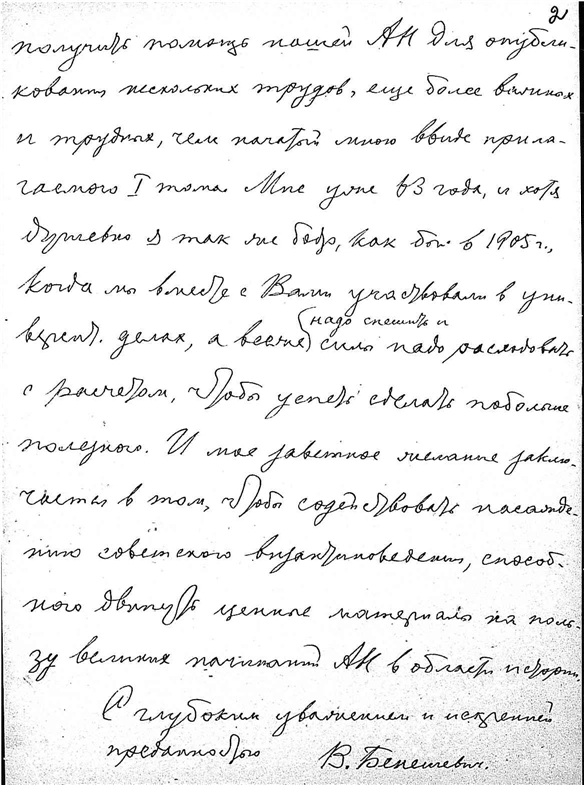 2
получить помощь нашей АН для опубли-
кования нескольких трудов, еще более важных
и трудных, чем начатый мною ввиде прила-
гаемого I тома. Мне уже 63 года, и хотя
душевно я так же бодр, как был в 1905 г.,
когда мы вместе с Вами участвовали в уни-
версит. делах, а все же
надо спешить и
силы надо расходовать
с расчетом, чтобы успеть сделать побольше
полезного. И мое заветное желание заклю-
чается в том, чтобы содействовать насажде-
нию советского византиноведения, способ-
ного двинуть ценные материалы на поль-
зу великих начинаний АН в области истории.
С глубоким уважением и искренней
преданностью
В. Бенешевич.